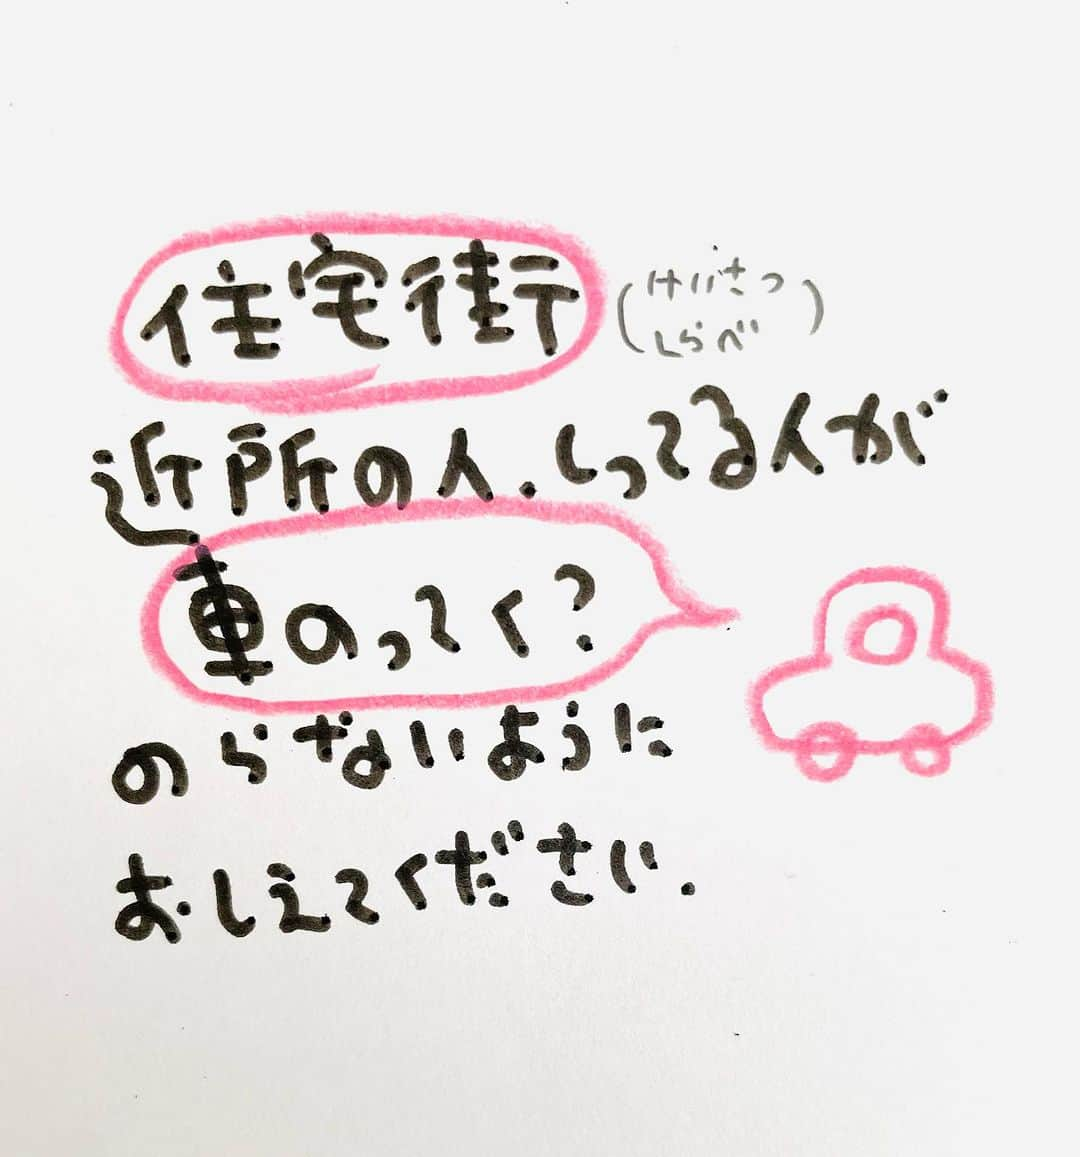 住宅街
(けいさつ
しらべ)
近所の人.しってる人が
車のってく?
のらないように
おしえてください.